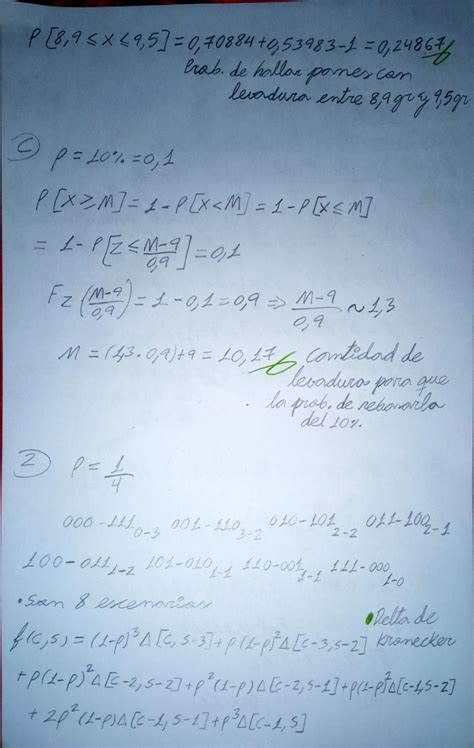 P[8,9 ≤ x ≤ 9,5] = 0,70884 + 0,53983 - 1 = 0,24867
Prob. de hallar panes con
levadura entre 8,9gr y 9,5gr
c) P = 10% = 0,1
P[X ≥ M] = 1 - P[X < M] = 1 - P[X ≤ M]
= 1 - P[Z ≤ (M-9)/0,9] = 0,1
Fz((M-9)/0,9) = 1 - 0,1 = 0,9 ⇒ (M-9)/0,9 ~ 1,3
M = (1,3 · 0,9) + 9 = 10,17 Cantidad de
levadura para que
la prob. de rebasarla
del 10%.
2) P = 1/4
000-111 0-3 001-110 3-2 010-101 2-2 011-100 2-1
100-011 1-2 101-010 1-1 110-001 1-1 111-000 1-0
• Son 8 escenarios
• Delta de
Kronecker
f(C,S) = (1-p)³Δ[C,S-3] + p(1-p)²Δ[C-3,S-2]
+ p(1-p)²Δ[C-2,S-2] + p²(1-p)Δ[C-2,S-1] + p(1-p)²Δ[C-1,S-2]
+ 2p²(1-p)Δ[C-1,S-1] + p³Δ[C-1,S]